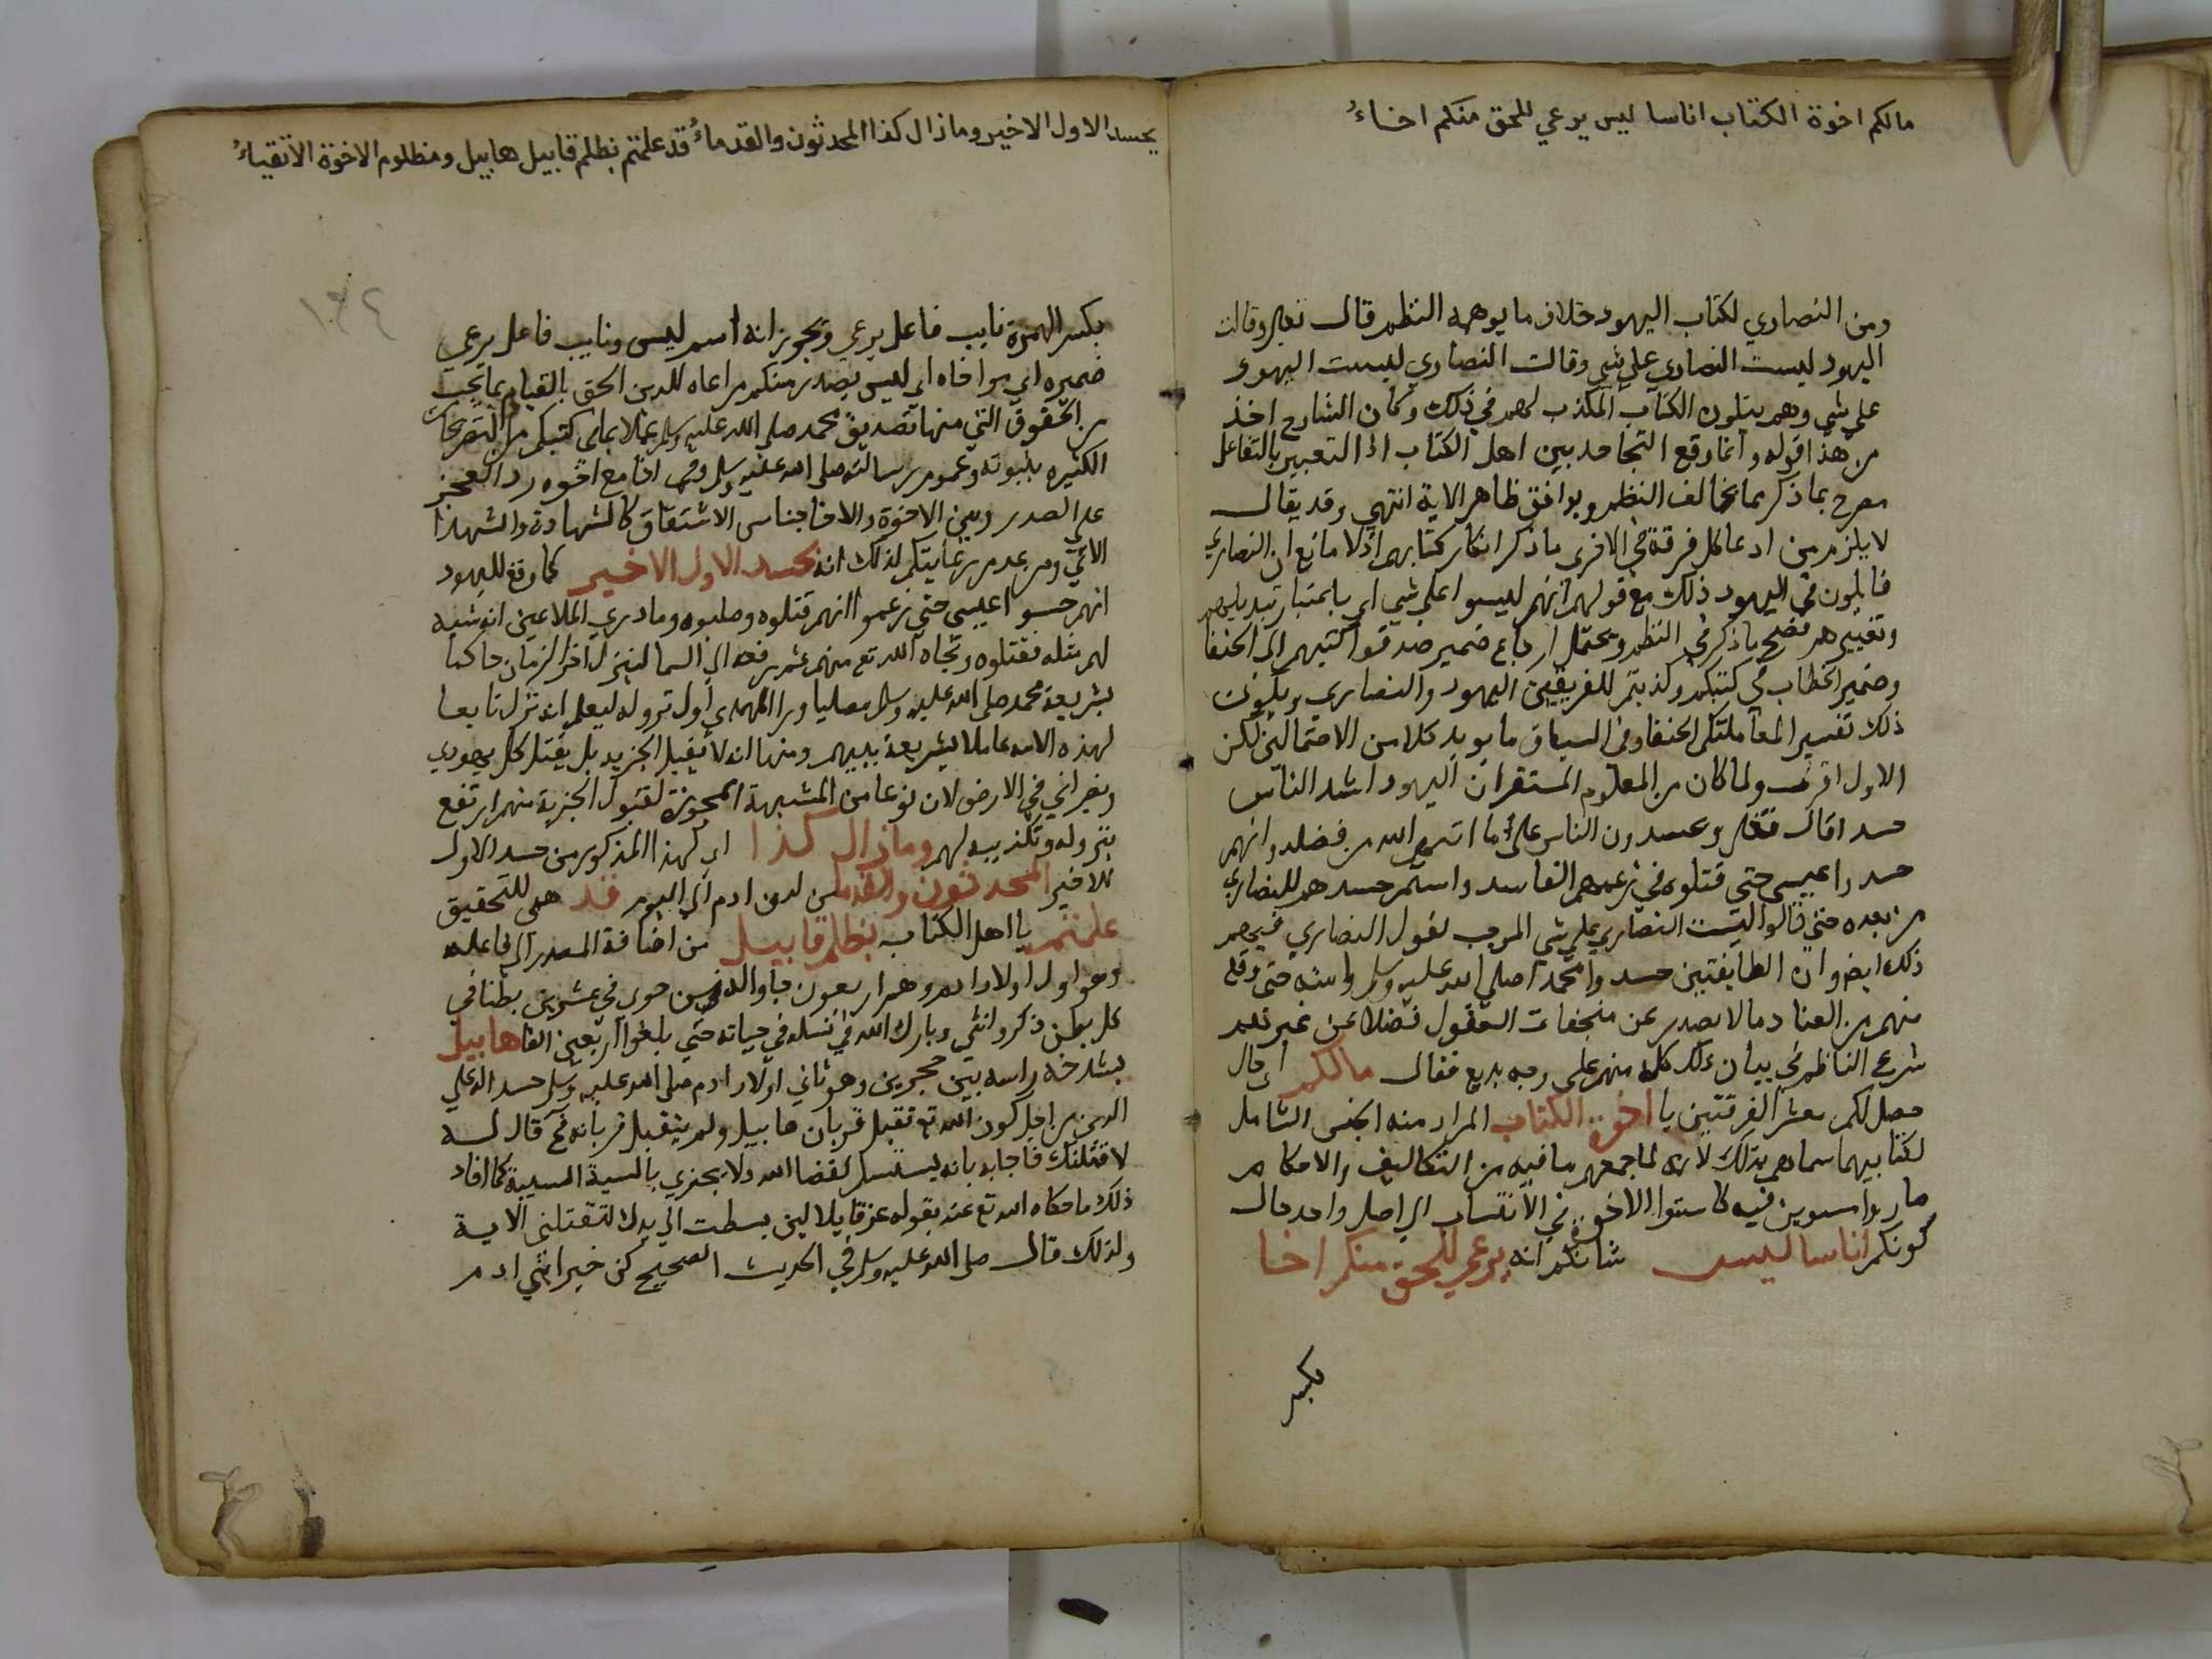 مالكم اخوة الكتاب اناسا ليس يرعي للحق منكم اخاءُ
ومن النصاري لكتاب اليهود خلاف ما يوهمه النظم قال تعالى وقالت
اليهود ليست النصاري علي شي وقالت النصاري ليست اليهود
علي شي وهم يتلون الكتاب المكذب لهم في ذلك وكان الشارح اخذ
من هذا قوله وانما وقع التجاحد بين اهل الكتاب اذ التعبير بالتفاعل
مصرح بما ذكر مما يخالف النظم ويوافق ظاهر الاية انتهي وقد يقال
لا يلزم من ادعا كل فرقة في الاخرى ما ذكر انكار كتابهم اذ لا مانع ان النصاري
قايلون في اليهود ذلك مع قولهم انهم ليسوا علي شي اي باعتبار تبديلهم
وتغييرهم فصح ما ذكر في النظم ويحتمل ارجاع ضمير صدقوا كتبهم الى الحنفا
وضمير الخطاب في كتبكم وكذبتم للفريقين اليهود والنصاري ويكون
ذلك تفسير المعاملتكم الحنفا وفي السياق ما يويد كلا من الاحتمالين لكن
الاول اقرب ولما كان من المعلوم المستقر ان اليهود اشد الناس
حسدا قال تعالى ام يحسدون الناس على ما اتاهم الله من فضله وانهم
حسدوا عيسى حتي قتلوه في زعمهم الفاسد واستمر حسدهم للنصاري
من بعده حتي قالوا ليست النصاري علي شي الموجب لقول النصاري فيهم
ذلك ايضا وان الطايفتين حسدوا محمدا صلي الله عليه وسلم وامته حتى وقع
منهم من العناد ما لا يصدر عن ... العقول فضلا عن غيرهم
شرع الناظم في بيان ذلك كله منهم علي وجه بديع فقال مالكم اي حال
حصل لكم معشر الفرقتين يا اخوة الكتاب المراد منه الجنس الشامل
لكتابيهما سماهم بذلك لانه لما جمعهم ما فيه من التكاليف والاحكام
صاروا مستوين فيه كاستوا الاخوة في الانتساب الي اصل واحد حال
كونكم اناسا ليس شانكم انه يرعي للحق منكم اخا
بكسر
يحسد الاول الاخير وما زال كذا المحدثون والقدماءُ قد علمتم بظلم قابيل هابيل ومظلوم الاخوة الاتقياءُ
١٣٤
بكسر الهمزة نايب فاعل يرعي ويجوز انه اسم ليس ونايب فاعل يرعي
ضميره اي مواخاه اي ليس يصدر منكم مراعاه للدين الحق بالقيام بما يجب
من الحقوق التي منها تصديق محمد صلى الله عليه وسلم عملا بما في كتبكم من التصريحات
الكثيره بنبوته وعموم رسالته صلى الله عليه وسلم وفي اخا مع اخوه رد العجز
على الصدر وبين الاخوة والاخا جناس الاشتقاق كالشهادة والشهدا
الاتي ومن عدم رعايتكم لذلك انه يحسد الاول الاخير كما وقع لليهود
انهم حسدوا عيسى حتي زعموا انهم قتلوه وصلبوه وما دري الملاعين انه شبه
لهم مثله فقتلوه ونجاه الله تع منهم ثم رفعه الي السما لينزل اخر الزمان حاكما
بشريعة محمد صلى الله عليه وسلم مصليا ورا المهدي اول نزوله ليعلم انه نزل تابعا
لهذه الامه عاملا بشريعة نبيهم ومنها انه لا يقبل الجزيه بل يقتل كل يهودي
ونصراني في الارض لان نوعا من المشبهة المجوزة لقبول الجزية منهم ارتفع
بنزوله وتكذيبه لهم وما زال كذا اي كهذا المذكور من حسد الاول
للاخير المحدثون والقدما من لدن ادم الي اليوم قد هي للتحقيق
علمتم يا اهل الكتاب بظلم قابيل من اضافة المصدر الي فاعله
وهو اول اولاد ادم وهم اربعون ... من حوي في عشرين بطنا في
كل بطن ذكر وانثي وبارك الله في نسله في حياته حتي بلغوا اربعين الفا هابيل
بشدخه راسه بين حجرين وهو ثاني اولاد ادم صلى الله عليه وسلم حسدا له علي
الدين من اجل كون الله تع تقبل قربان هابيل ولم يتقبل قربانه فح قال له
لاقتلنك فاجابه بانه يستسلم لقضا الله ولا يجزي بالسية السيية كما افاد
ذلك ما حكاه الله تع عنه بقوله عز قايلا لين بسطت الي يدك لتقتلني الاية
ولذلك قال صلى الله عليه وسلم في الحديث الصحيح كن خير ابني ادم